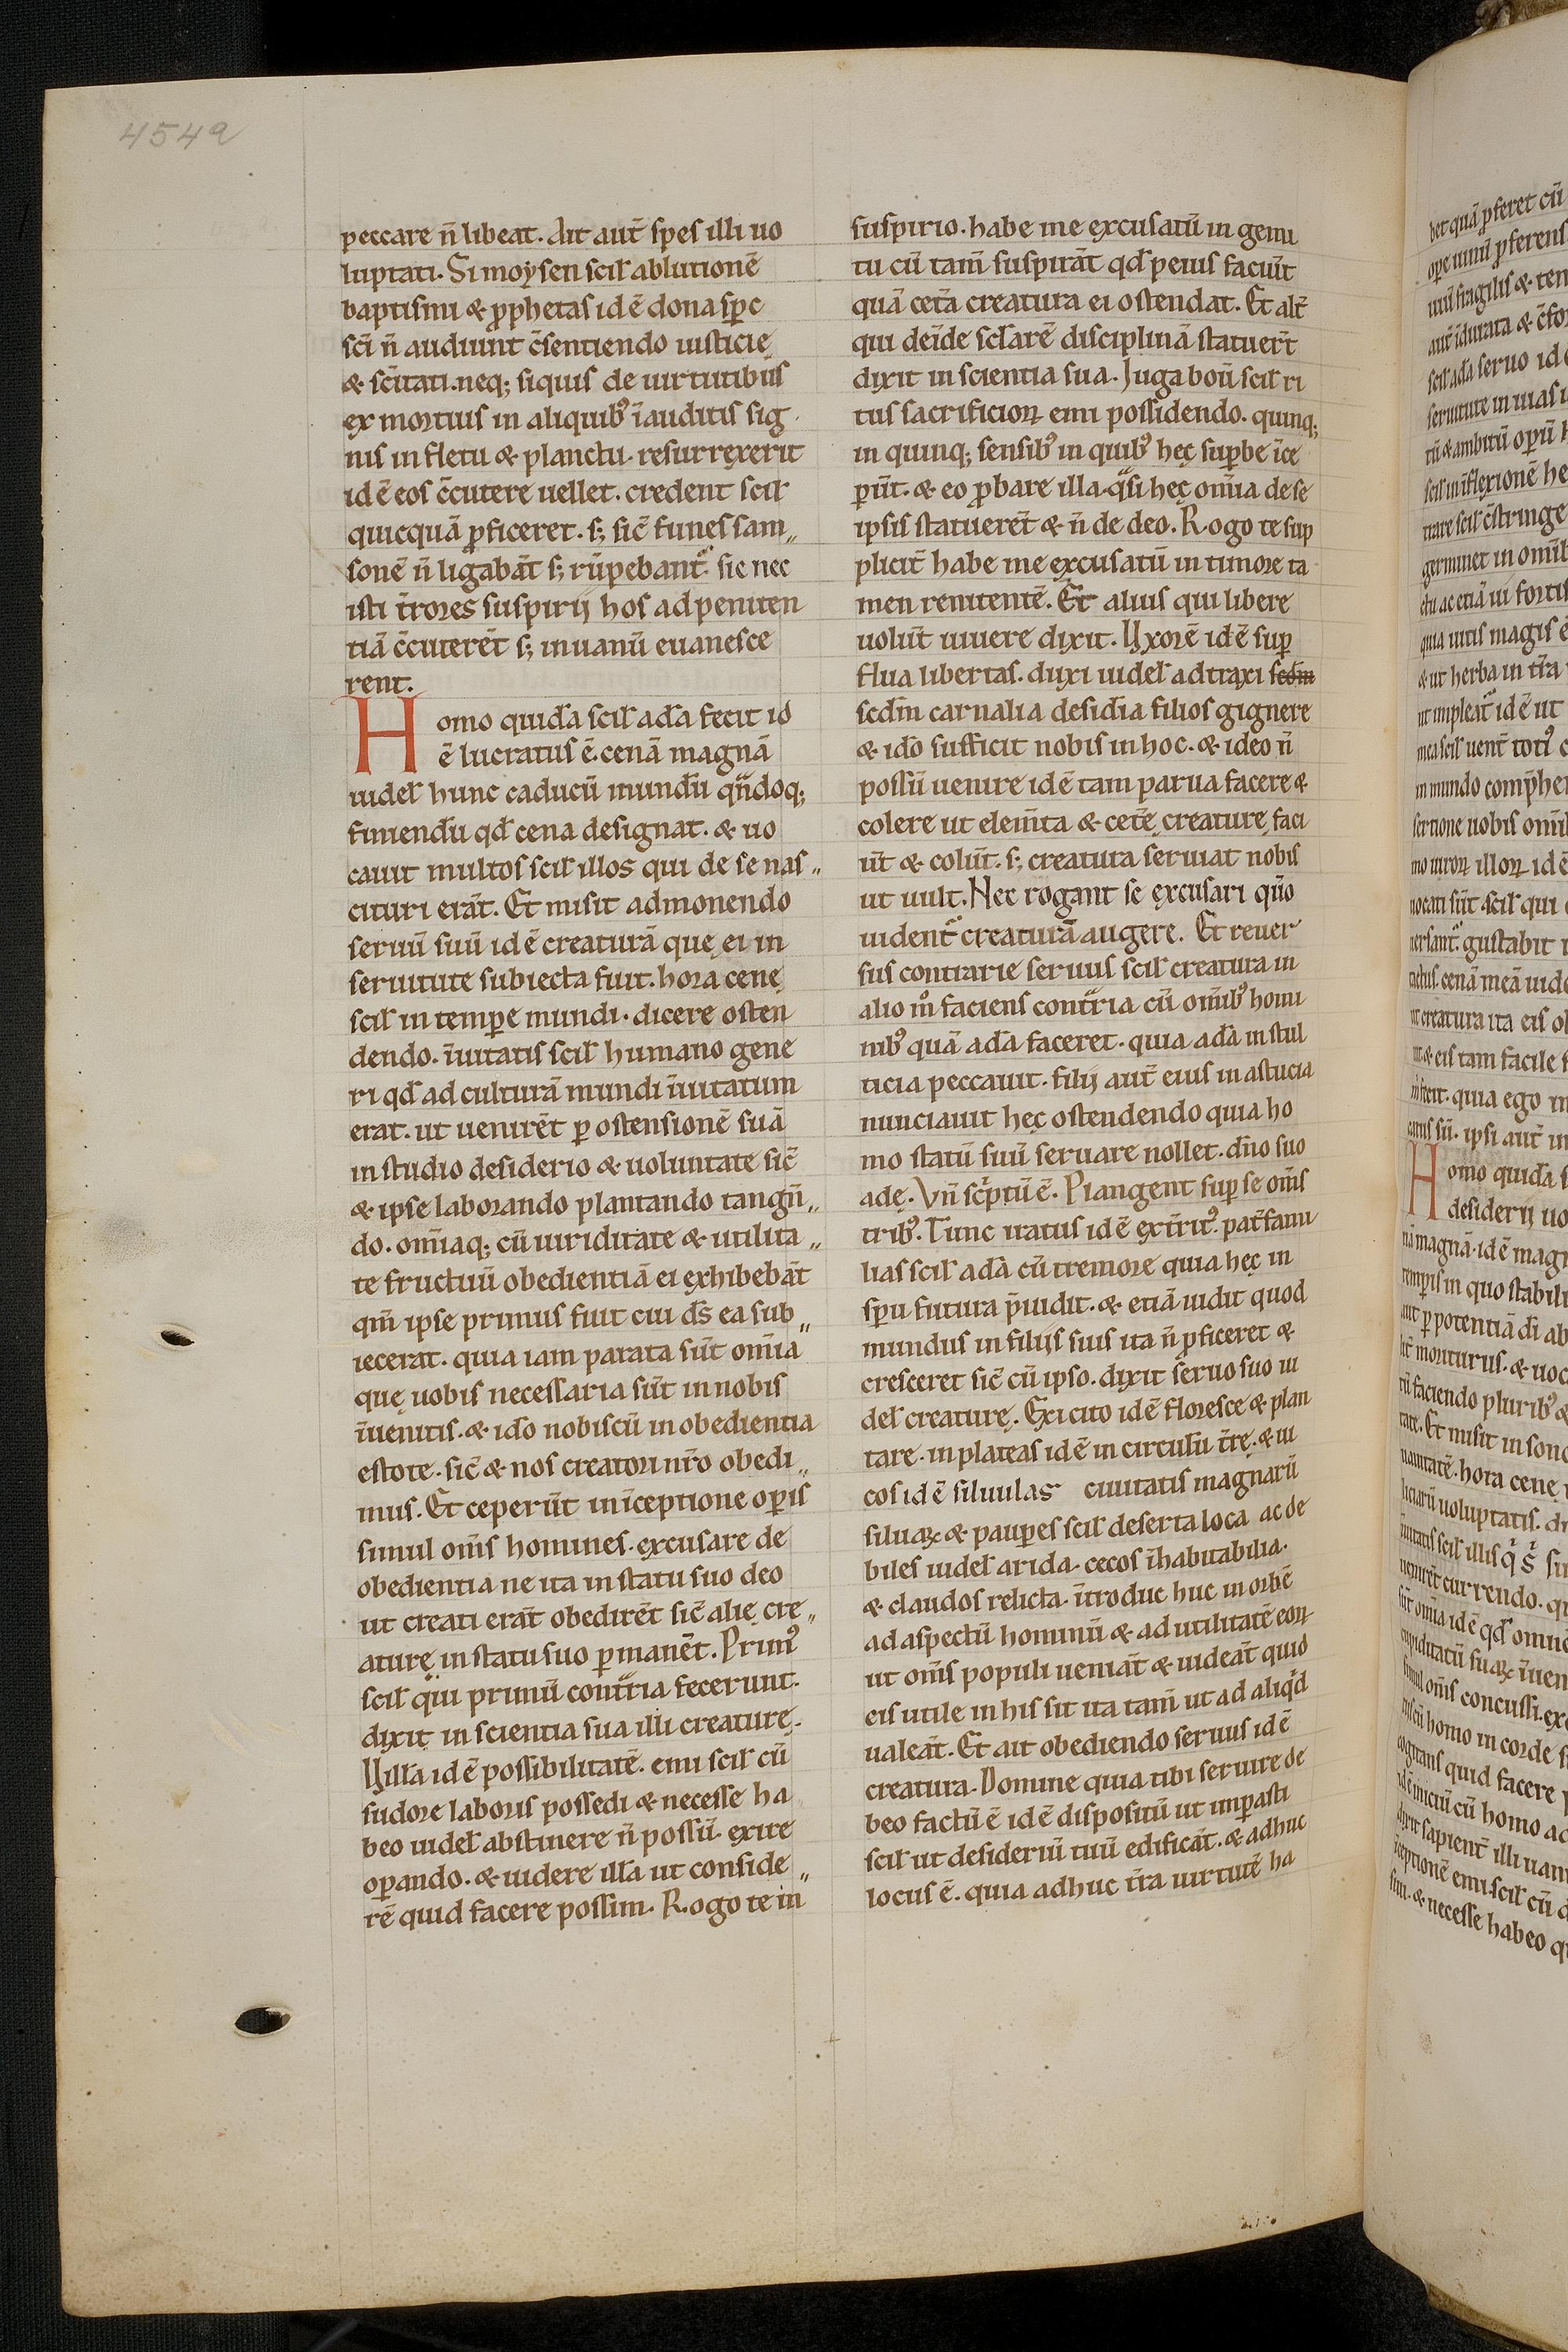 454a
peccare n̄ libeat. Ait aut̄ spes illi uo
luptati. Si moysen scil ablutionē
baptismi & ꝓphetas id ē dona spc
sc̄i n̄ audiunt c̄sentiendo iusticię
& sc̄itati. neq; siquis de uirtutibus
ex mortuis in aliquibꝰ īauditis sig
nis in fletu & planctu resurrexerit
id ē eos c̄cutere uellet. credent scil
quicquā ꝓficeret. s; sic̄ funes sam„
sonē n̄ ligabāt s; rūpebant᷑. sic nec
isti t̄rores suspirij hos ad peniten
tiā c̄cuterēt s; in uanū euanesce
rent.
Homo quidā scil adā fecit id
ē lucratus ē. cenā magnā
uidel hunc caducū mundū qn̄doq;
finiendū qd̄ cena designat. & uo
cauit multos scil illos qui de se nas„
cituri erāt. Et misit admonendo
seruū suū id ē creaturā que ei in
seruitute subiecta fuit. hora cenę
scil in tempe mundi. dicere osten
dendo. īuitatis scil humano gene
ri qd̄ ad culturā mundi īuitatum
erat. ut uenirēt ꝑ ostensionē suā
in studio desiderio & uoluntate sic̄
& ipse laborando plantando tangn̄„
do. om̄iaq; cū uiriditate & utilita„
te fructuū obedientiā ei exhibebāt
qm̄ ipse primus fuit cui ds̄ ea sub„
iecerat. quia iam parata sūt om̄ia
quę uobis necessaria sūt in nobis
īuenitis. & ido nobiscū in obedientia
estote. sic̄ & nos creatori nr̄o obedi„
mus. Et ceperūt in īceptione opis
simul om̄s homines. excusare de
obedientia ne ita in statu suo deo
ut creati erāt obedirēt sic̄ alię cre„
aturę in statu suo ꝑmanēt. Primꝰ
scil qui primū contria fecerunt.
dixit in scientia sua illi creaturę.
Villā id ē possibilitatē. emi scil cū
sudore laboris possedi & necesse ha
beo uidel abstinere n̄ possū. exire
opando. & uidere illa ut conside„
rē quid facere possim. Rogo te in
suspirio. habe me excusatū in gemi
tu cū tam̄ suspirāt qd̄ peius faciūt
quā cetā creatura ei ostendat. Et alt̄
qui deīde sclarē disciplinā statuert̄
dixit in scientia sua. Juga boū scil ri
tus sacrificioꝝ emi possidendo. quinq;
in quinq; sensibꝰ in quibꝰ hec supbe īce
pūt. & eo ꝓbare illa. qͣsi hec om̄ia de se
ipsis statuerēt & n̄ de deo. Rogo te sup
plicit̄ habe me excusatū in timore ta
men renitentē. Et alius qui libere
uolūt uiuere dixit. Vxorē id ē sup
flua libertas. duxi uidel adtraxi scdm̄
scdm̄ carnalia desidia filios gignere
& ido sufficit nobis in hoc. & ideo n̄
possū uenire id ē tam parua facere &
colere ut elem̄ta & cetę creaturę faci
ūt & colūt. s; creatura seruiat nobis
ut uult. Nec rogant se excusari quo
uident᷑ creaturā augere. Et reuer
sus contrarie seruus scil creatura in
alio m̊ faciens contria cū om̄ibꝰ homi
nibꝰ quā adā faceret. quia adā in stul
ticia peccauit. filij aut̄ eius in astucia
nunciauit hec ostendendo quia ho
mo statū suū seruare nollet. dn̄o suo
adę. Vn̄ sc̄ptū ē. Plangent sup se om̄s
tribꝰ. Tunc iratus id ē extr̄itꝰ. pat̄fami
lias scil adā cū tremore quia hec in
spu futura p̄uidit. & etiā uidit quod
mundus in filijs suis ita n̄ ꝓficeret &
cresceret sic̄ cū ipso. dixit seruo suo ui
del creaturę. Exi cito id ē floresce & plan
tare. in plateas id ē in circuitu t̄rę. & ui
cos id ē siluulas ciuitatis magnarū
siluaꝝ & paupes scil deserta loca ac de
biles uidel arida. cecos īhabitabilia.
& claudos relicta. ītroduc huc in orbē
ad aspectū hominū & ad utilitatē eoꝝ
ut om̄s populi ueniāt & uideāt quid
eis utile in his sit ita tam̄ ut ad aliqd
ualeāt. Et ait obediendo seruus id ē
creatura. Domine quia tibi seruire de
beo factū ē id ē dispositū ut impasti
scil ut desideriū tuū edificāt. & adhuc
locus ē. quia adhuc t̄ra uirtutē ha